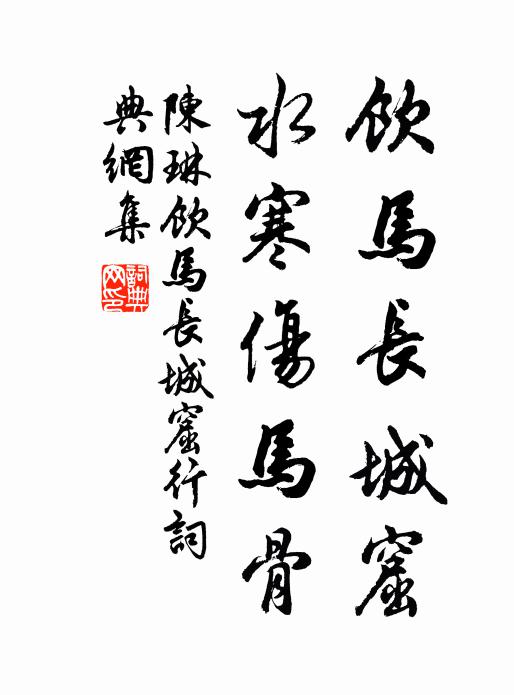 飲馬長城窟
水寒傷馬骨
陳琳飲馬長城窟行詞
典網集
詞典
网印